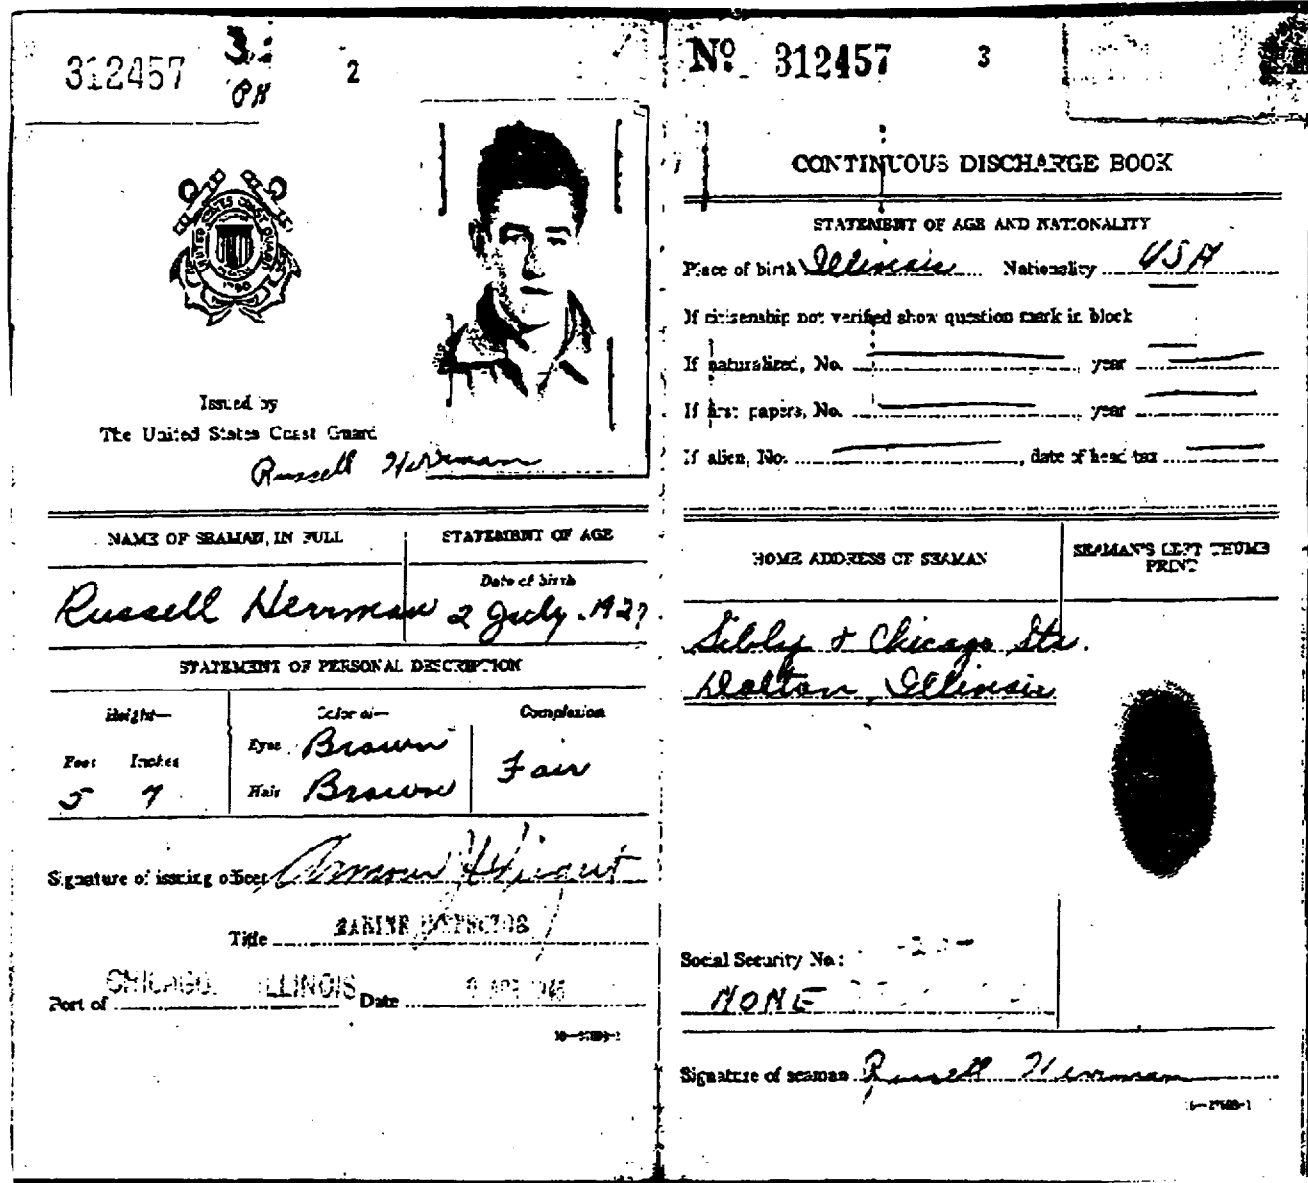 312457
2
UNITED STATES COAST GUARD
1790
Issued by
The United States Coast Guard
Russell Herrman
NAME OF SEAMAN, IN FULL
STATEMENT OF AGE
Date of birth
Russell Herrman
2 July 1927
STATEMENT OF PERSONAL DESCRIPTION
Height—
Color of—
Complexion
Feet Inches
Eyes Brown
Fair
5 7
Hair Brown
Signature of issuing officer
Title MARINE INSPECTOR
Port of CHICAGO, ILLINOIS Date
No. 312457
3
CONTINUOUS DISCHARGE BOOK
STATEMENT OF AGE AND NATIONALITY
Place of birth Illinois Nationality USA
If citizenship not verified show question mark in block
If naturalized, No. year
If first papers, No. year
If alien, No. , date of head tax
HOME ADDRESS OF SEAMAN
SEAMAN'S LEFT THUMB
PRINT
Sibley + Chicago Sts.
Dolton, Illinois
Social Security No.:
NONE
Signature of seaman Russell Herrman